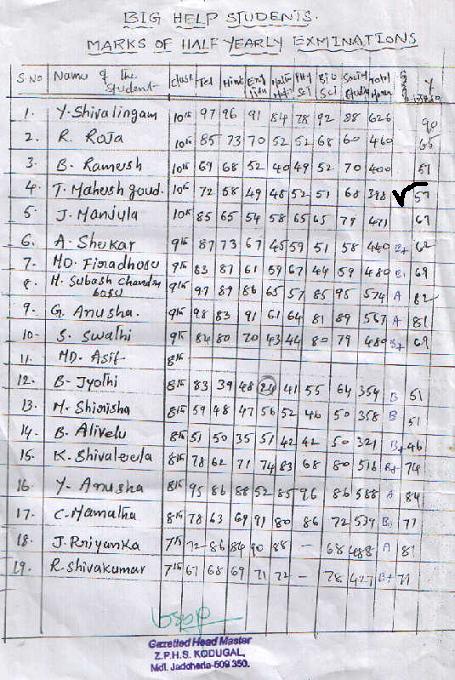 BIG HELP STUDENTS.
MARKS OF HALF YEARLY EXMINATIONS
S.No Name of the student class Tel Hindi English Maths Phy Sci Bio Sci Social Study Total
1. Y. Shivalingam 10th 97 96 91 84 78 92 88 626 90
2. R. Roja 10th 85 73 70 52 52 68 60 460 66
3 B. Ramesh 10th 69 68 52 40 49 52 70 400 57
4. T. Mahesh goud. 10th 72 58 49 48 52 51 68 398 ✓ 57
5 J. Manjula 10th 85 65 54 58 65 65 79 471 67
6. A. Shekar 9th 87 73 67 45 59 51 58 440 B+ 62
7. MD. 9th 83 87 61 59 67 44 59 480 B+ 69
8 M. Subash chandra bosu 9th 97 89 86 65 57 85 95 574 A 82
9. G. Anusha. 9th 98 83 91 61 64 81 89 567 A 81
10. S. Swathi 9th 84 80 70 43 44 80 79 480 B+ 69
11. MD. Asif 8th
12. B. Jyothi 8th 83 39 48 24 41 55 64 354 B 51
13. M. Shirisha 8th 59 48 47 56 52 46 50 358 B 51
14. B. Alivelu 8th 51 50 35 51 42 42 50 321 B+ 46
15. K. Shivaleela 8th 78 62 71 74 83 68 80 516 B+ 74
16 Y. Anusha 8th 95 86 88 52 85 96 86 588 A 84
17. C. Mamatha 8th 78 63 69 91 80 86 72 539 B+ 77
18. J. Priyanka 7th 72 86 84 90 88 - 68 488 A 81
19. R. Shivakumar 7th 67 68 69 71 72 - 78 427 B+ 71
Gazetted Head Master
Z.P.H.S. KODUGAL,
Mdl. Jadcherla-509 350.